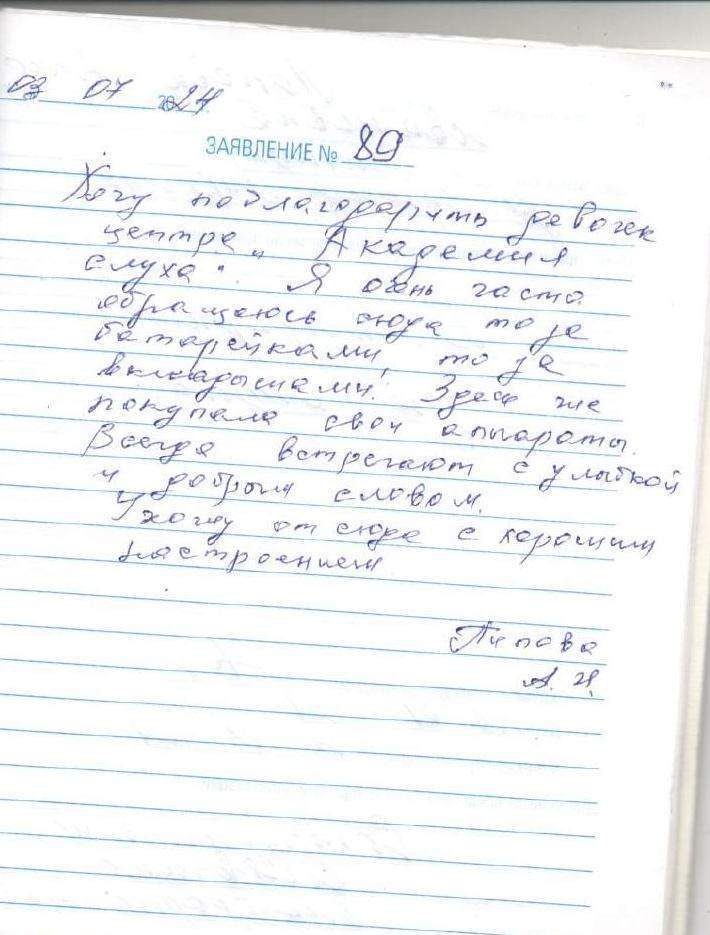 03 07 2024
ЗАЯВЛЕНИЕ № 89
Хочу поблагодарить девочек
центра „Академия
слуха". Я очень часто
обращаюсь сюда то за
батарейками, то за
вкладышами. Здесь же
покупала свои аппараты.
Всегда встречают с улыбкой
и добрым словом.
Ухожу отсюда с хорошим
настроением
А. И.